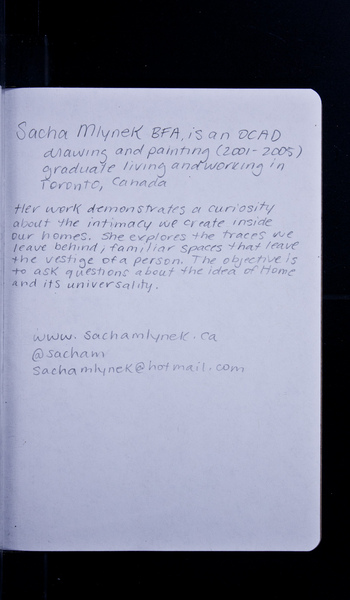 Sacha Mlynek BFA, is an OCAD
drawing and painting (2001-2005)
graduate living and working in
Toronto, Canada
Her work demonstrates a curiosity
about the intimacy we create inside
our homes. She explores the traces we
leave behind, familiar spaces that leave
the vestige of a person. The objective is
to ask questions about the idea of Home
and its universality.
www.sachamlynek.ca
@sacham
sachamlynek@hotmail.com